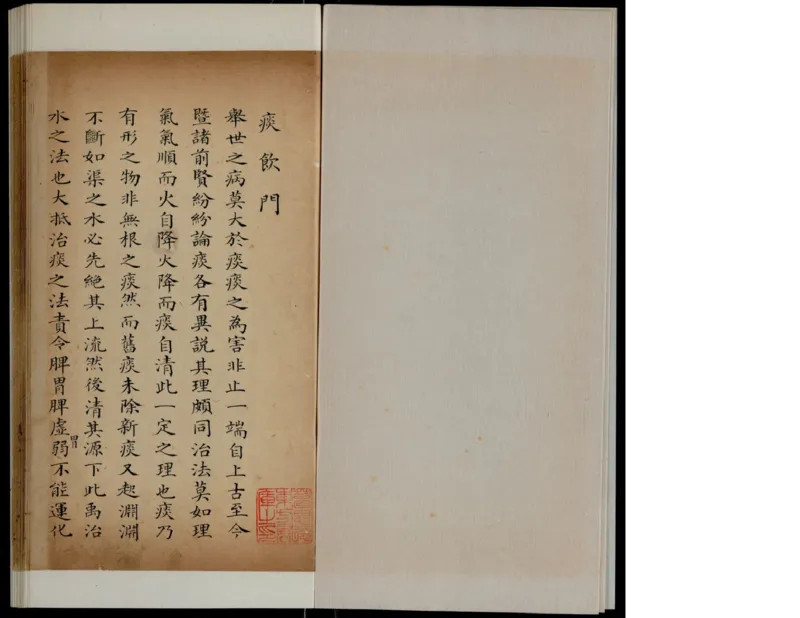 痰飲門
舉世之病莫大於痰痰之為害非止一端自上古至今
暨諸前賢紛紛論痰各有異說其理頗同治法莫如理
氣氣順而火自降火降而痰自清此一定之理也痰乃
有形之物非無根之痰然而舊痰未除新痰又起淵淵
不斷如渠之水必先絕其上流然後清其源下此禹治
水之法也大抵治痰之法責令脾胃脾虛胃弱不能運化